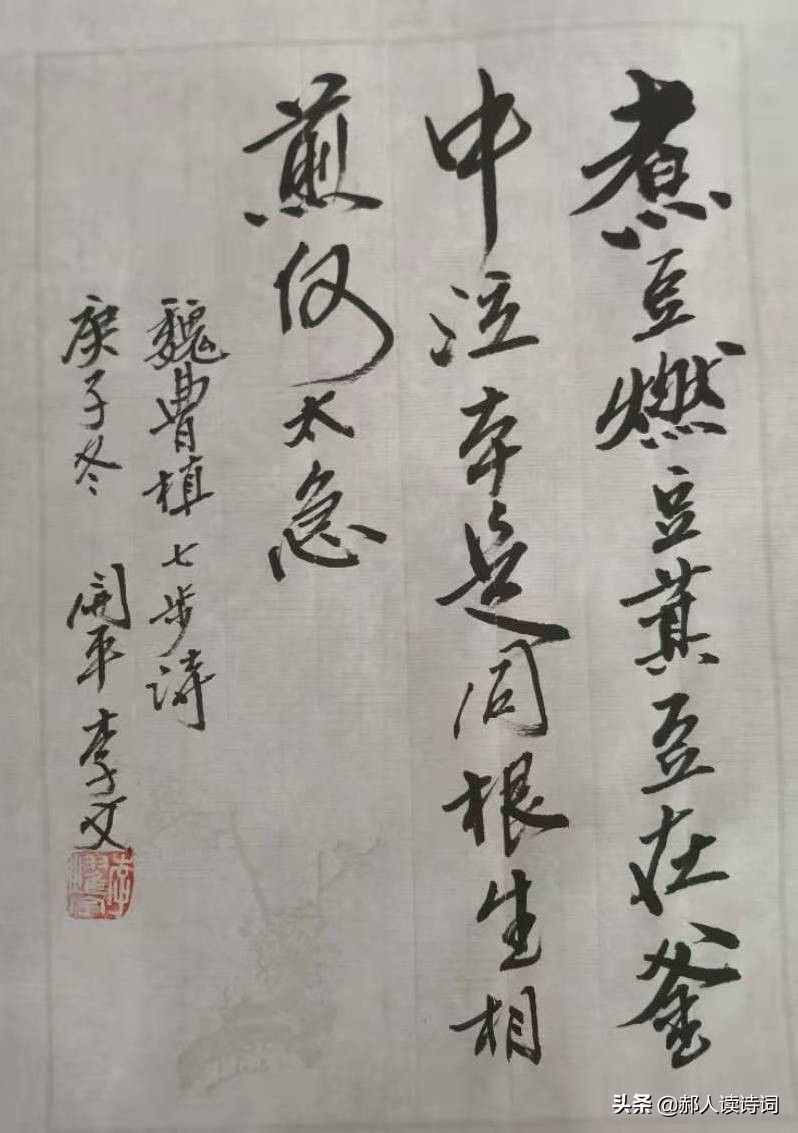 煮豆燃豆萁豆在釜
中泣本是同根生相
煎何太急
魏曹植七步诗
庚子冬 開平李文
头条 @郝人读诗词